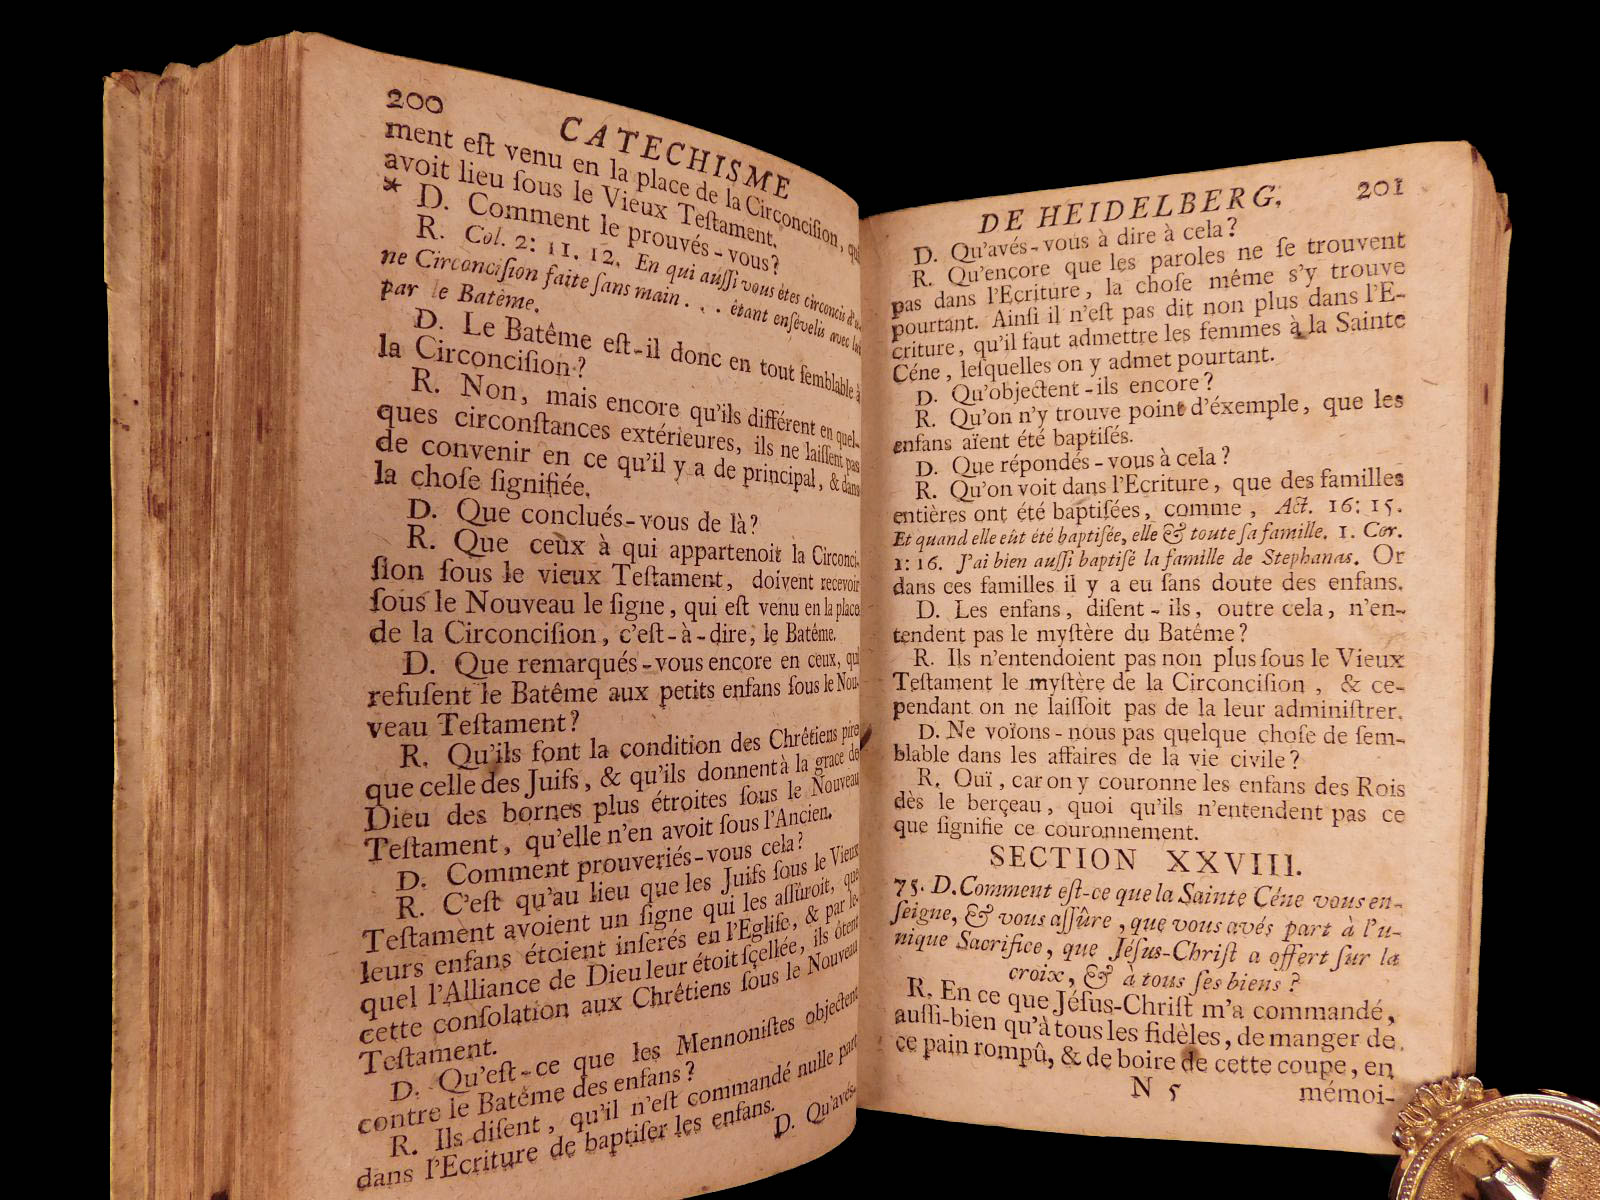 200
CATECHISME
ment eſt venu en la place de la Circonciſion, qui
avoit lieu ſous le Vieux Teſtament.
* D. Comment le prouvés-vous?
R. Col. 2: 11. 12. En qui auſſi vous êtes circoncis d'u-
ne Circonciſion faite ſans main . . . êtant enſévelis avec lui
par le Batême.
D. Le Batême eſt-il donc en tout ſemblable à
la Circonciſion?
R. Non, mais encore qu'ils différent en quel-
ques circonſtances extérieures, ils ne laiſſent pas
de convenir en ce qu'il y a de principal, & dans
la choſe ſignifiée.
D. Que conclués-vous de là?
R. Que ceux à qui appartenoit la Circonci-
ſion ſous le vieux Teſtament, doivent recevoir
ſous le Nouveau le ſigne, qui eſt venu en la place
de la Circonciſion, c'eſt-à-dire, le Batême.
D. Que remarqués-vous encore en ceux, qui
refuſent le Batême aux petits enfans ſous le Nou-
veau Teſtament?
R. Qu'ils font la condition des Chrêtiens pire
que celle des Juifs, & qu'ils donnent à la grace de
Dieu des bornes plus étroites ſous le Nouveau
Teſtament, qu'elle n'en avoit ſous l'Ancien.
D. Comment prouveriés-vous cela?
R. C'eſt qu'au lieu que les Juifs ſous le Vieux
Teſtament avoient un ſigne qui les aſſûroit, que
leurs enfans étoient inſerés en l'Egliſe, & par le-
quel l'Alliance de Dieu leur étoit ſçellée, ils ôtent
cette conſolation aux Chrêtiens ſous le Nouveau
Teſtament.
D. Qu'eſt-ce que les Mennoniſtes objectent
contre le Batême des enfans?
R. Ils diſent, qu'il n'eſt commandé nulle part
dans l'Ecriture de baptiſer les enfans.
D. Qu'avés-
DE HEIDELBERG.
201
D. Qu'avés-vous à dire à cela?
R. Qu'encore que les paroles ne ſe trouvent
pas dans l'Ecriture, la choſe même s'y trouve
pourtant. Ainſi il n'eſt pas dit non plus dans l'E-
criture, qu'il faut admettre les femmes à la Sainte
Céne, leſquelles on y admet pourtant.
D. Qu'objectent-ils encore?
R. Qu'on n'y trouve point d'éxemple, que les
enfans aïent été baptiſés.
D. Que répondés-vous à cela?
R. Qu'on voit dans l'Ecriture, que des familles
entières ont été baptiſées, comme, Act. 16: 15.
Et quand elle eût été baptiſée, elle & toute ſa famille. 1. Cor.
1: 16. J'ai bien auſſi baptiſé la famille de Stephanas. Or
dans ces familles il y a eu ſans doute des enfans.
D. Les enfans, diſent-ils, outre cela, n'en-
tendent pas le myſtère du Batême?
R. Ils n'entendoient pas non plus ſous le Vieux
Teſtament le myſtère de la Circonciſion, & ce-
pendant on ne laiſſoit pas de la leur adminiſtrer.
D. Ne voïons-nous pas quelque choſe de ſem-
blable dans les affaires de la vie civile?
R. Ouï, car on y couronne les enfans des Rois
dès le berçeau, quoi qu'ils n'entendent pas ce
que ſignifie ce couronnement.
SECTION XXVIII.
75. D. Comment eſt-ce que la Sainte Céne vous en-
ſeigne, & vous aſſûre, que vous avés part à l'u-
nique Sacrifice, que Jéſus-Chriſt a offert ſur la
croix, & à tous ſes biens?
R. En ce que Jéſus-Chriſt m'a commandé,
auſſi-bien qu'à tous les fidèles, de manger de
ce pain rompû, & de boire de cette coupe, en
N 5
mémoi-